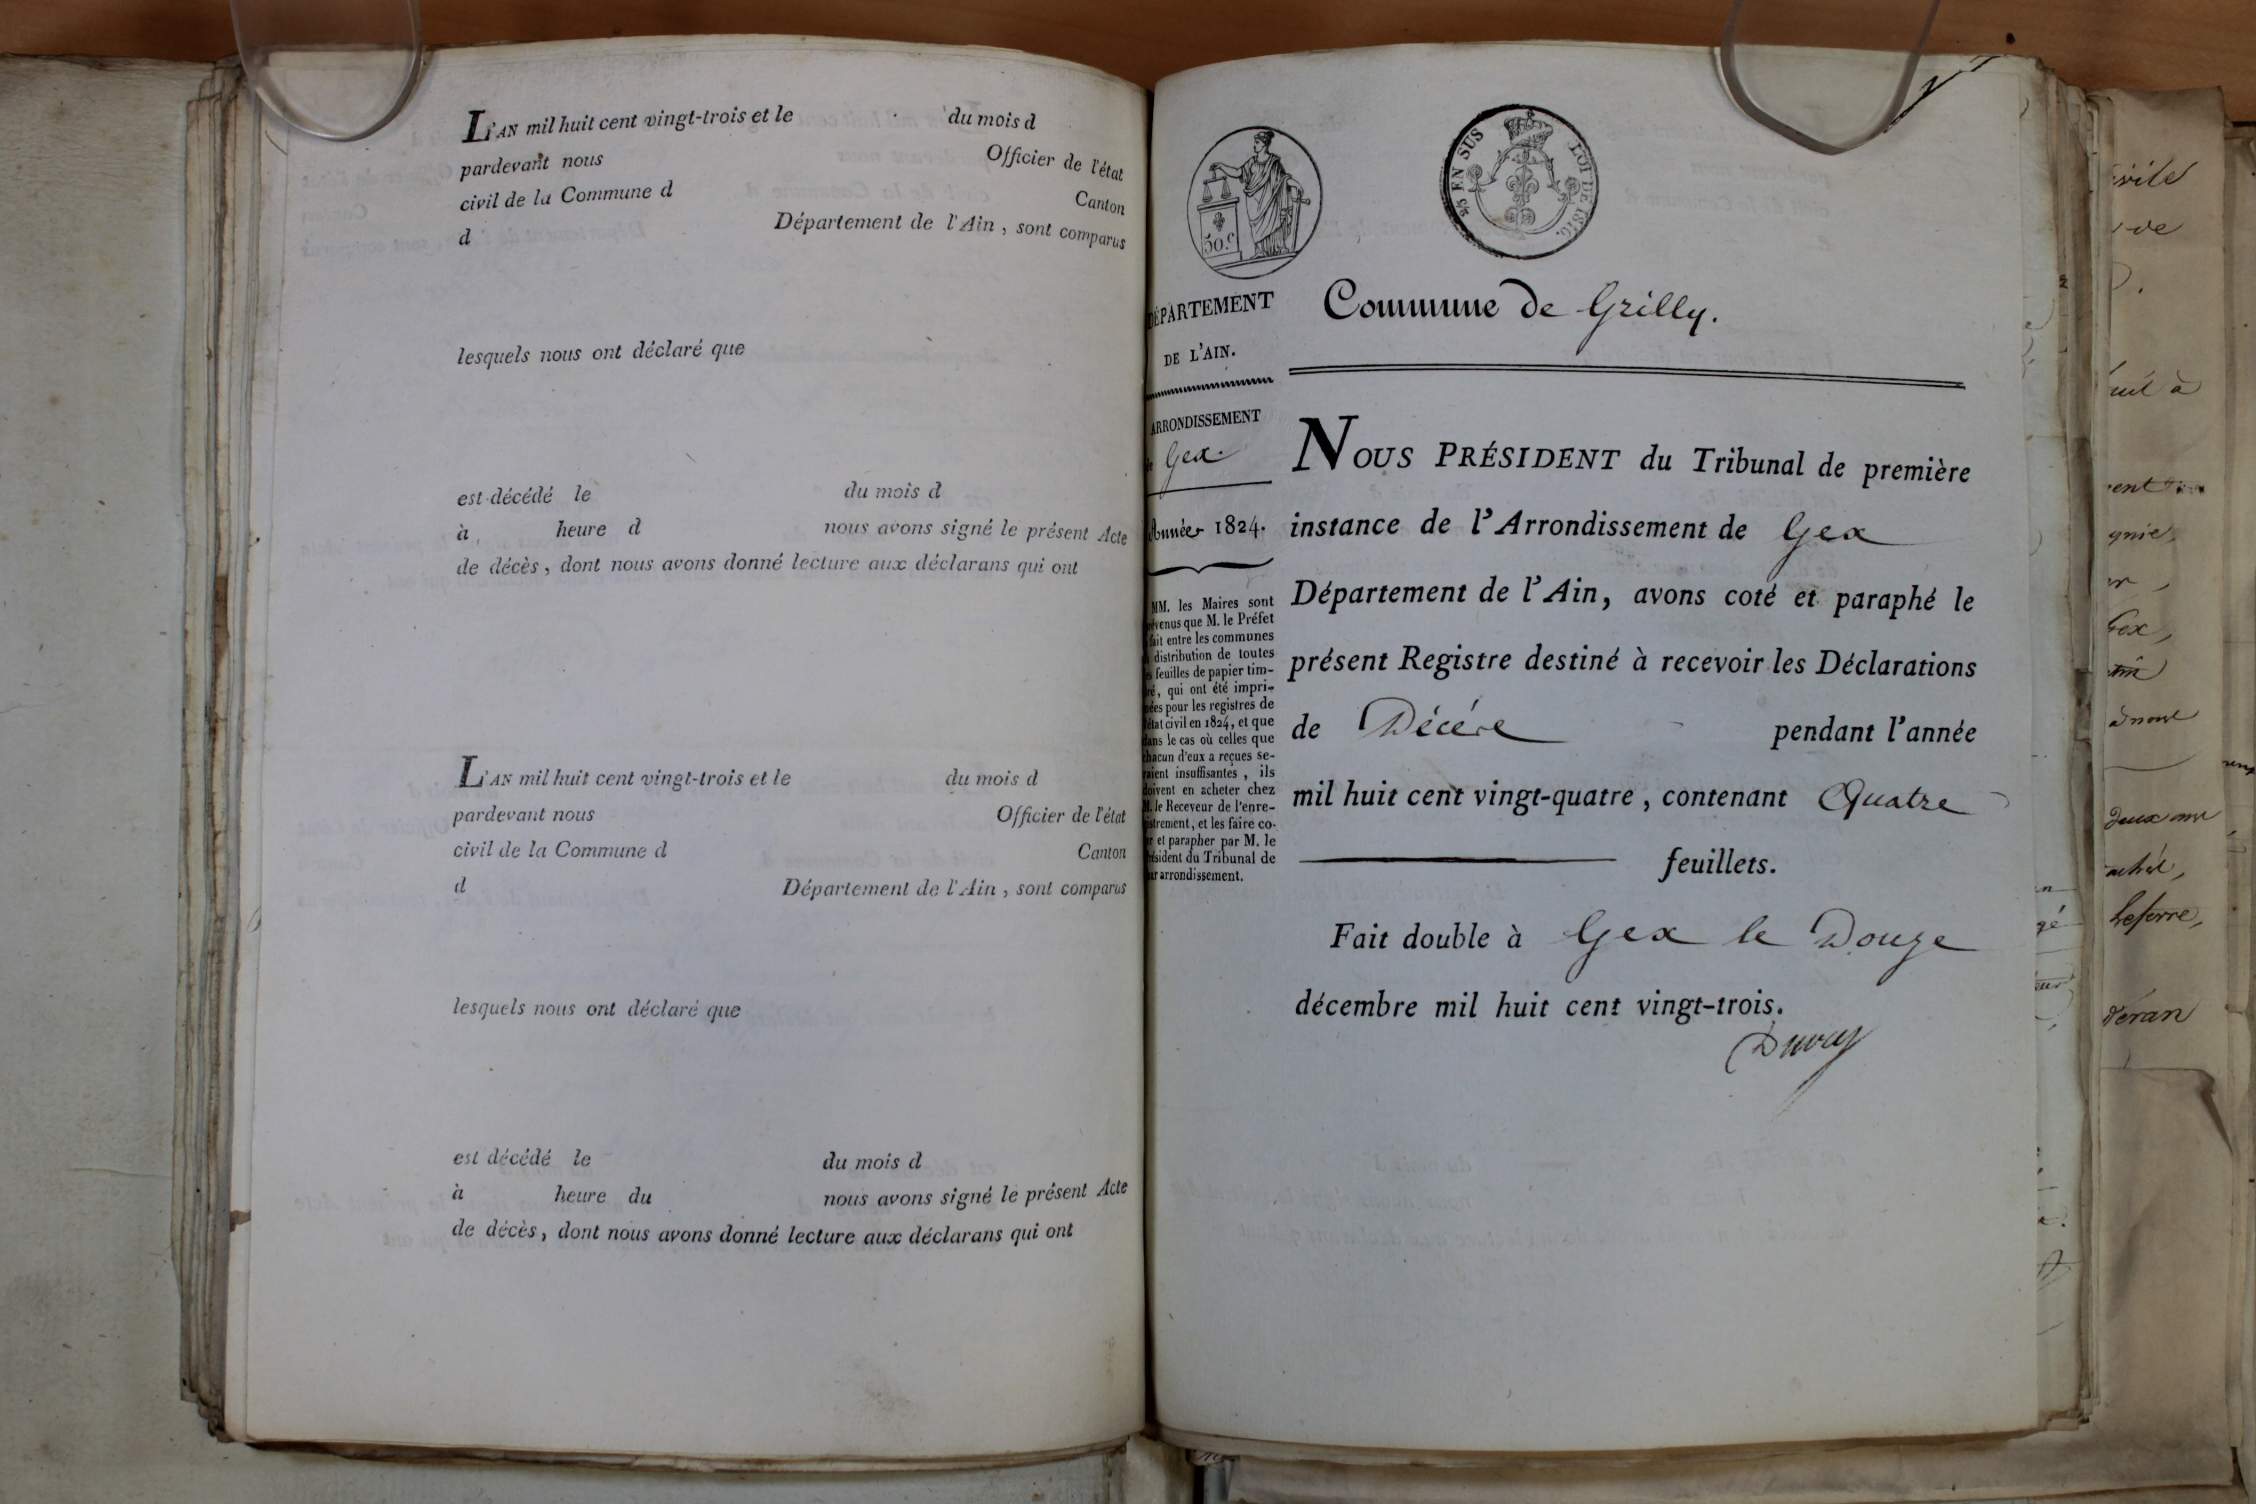 L'AN mil huit cent vingt-trois et le du mois d
pardevant nous Officier de l'état
civil de la Commune d Canton
d Département de l'Ain, sont comparus
lesquels nous ont déclaré que
est décédé le du mois d
à heure d nous avons signé le présent Acte
de décès, dont nous avons donné lecture aux déclarans qui ont
L'AN mil huit cent vingt-trois et le du mois d
pardevant nous Officier de l'état
civil de la Commune d Canton
d Département de l'Ain, sont comparus
lesquels nous ont déclaré que
est décédé le du mois d
à heure du nous avons signé le présent Acte
de décès, dont nous avons donné lecture aux déclarans qui ont
50.c
EN SUS LOI DE 1816.
DÉPARTEMENT
DE L'AIN.
ARRONDISSEMENT
de Gex.
Année 1824.
MM. les Maires sont
prévenus que M. le Préfet
fait entre les communes
distribution de toutes
feuilles de papier tim-
bré, qui ont été impri-
mées pour les registres de
l'état civil en 1824, et que
dans le cas où celles que
chacun d'eux a reçues se-
raient insuffisantes, ils
doivent en acheter chez
M. le Receveur de l'enre-
gistrement, et les faire co-
ter et parapher par M. le
Président du Tribunal de
leur arrondissement.
Commune de Grilly.
NOUS PRÉSIDENT du Tribunal de première
instance de l'Arrondissement de Gex
Département de l'Ain, avons coté et paraphé le
présent Registre destiné à recevoir les Déclarations
de Décés pendant l'année
mil huit cent vingt-quatre, contenant Quatre
feuillets.
Fait double à Gex le Douze
décembre mil huit cent vingt-trois.